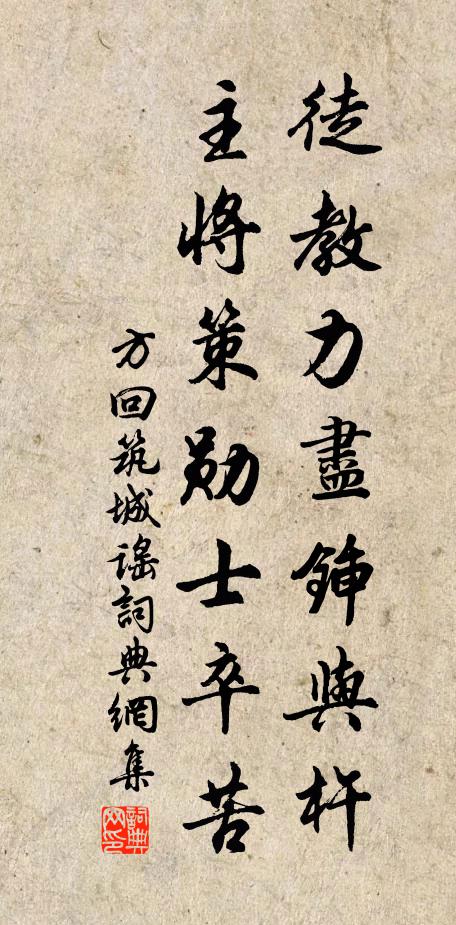 徒教力盡鍤與杵
主將策勛士卒苦
方回筑城謠詞典網集
詞典網印